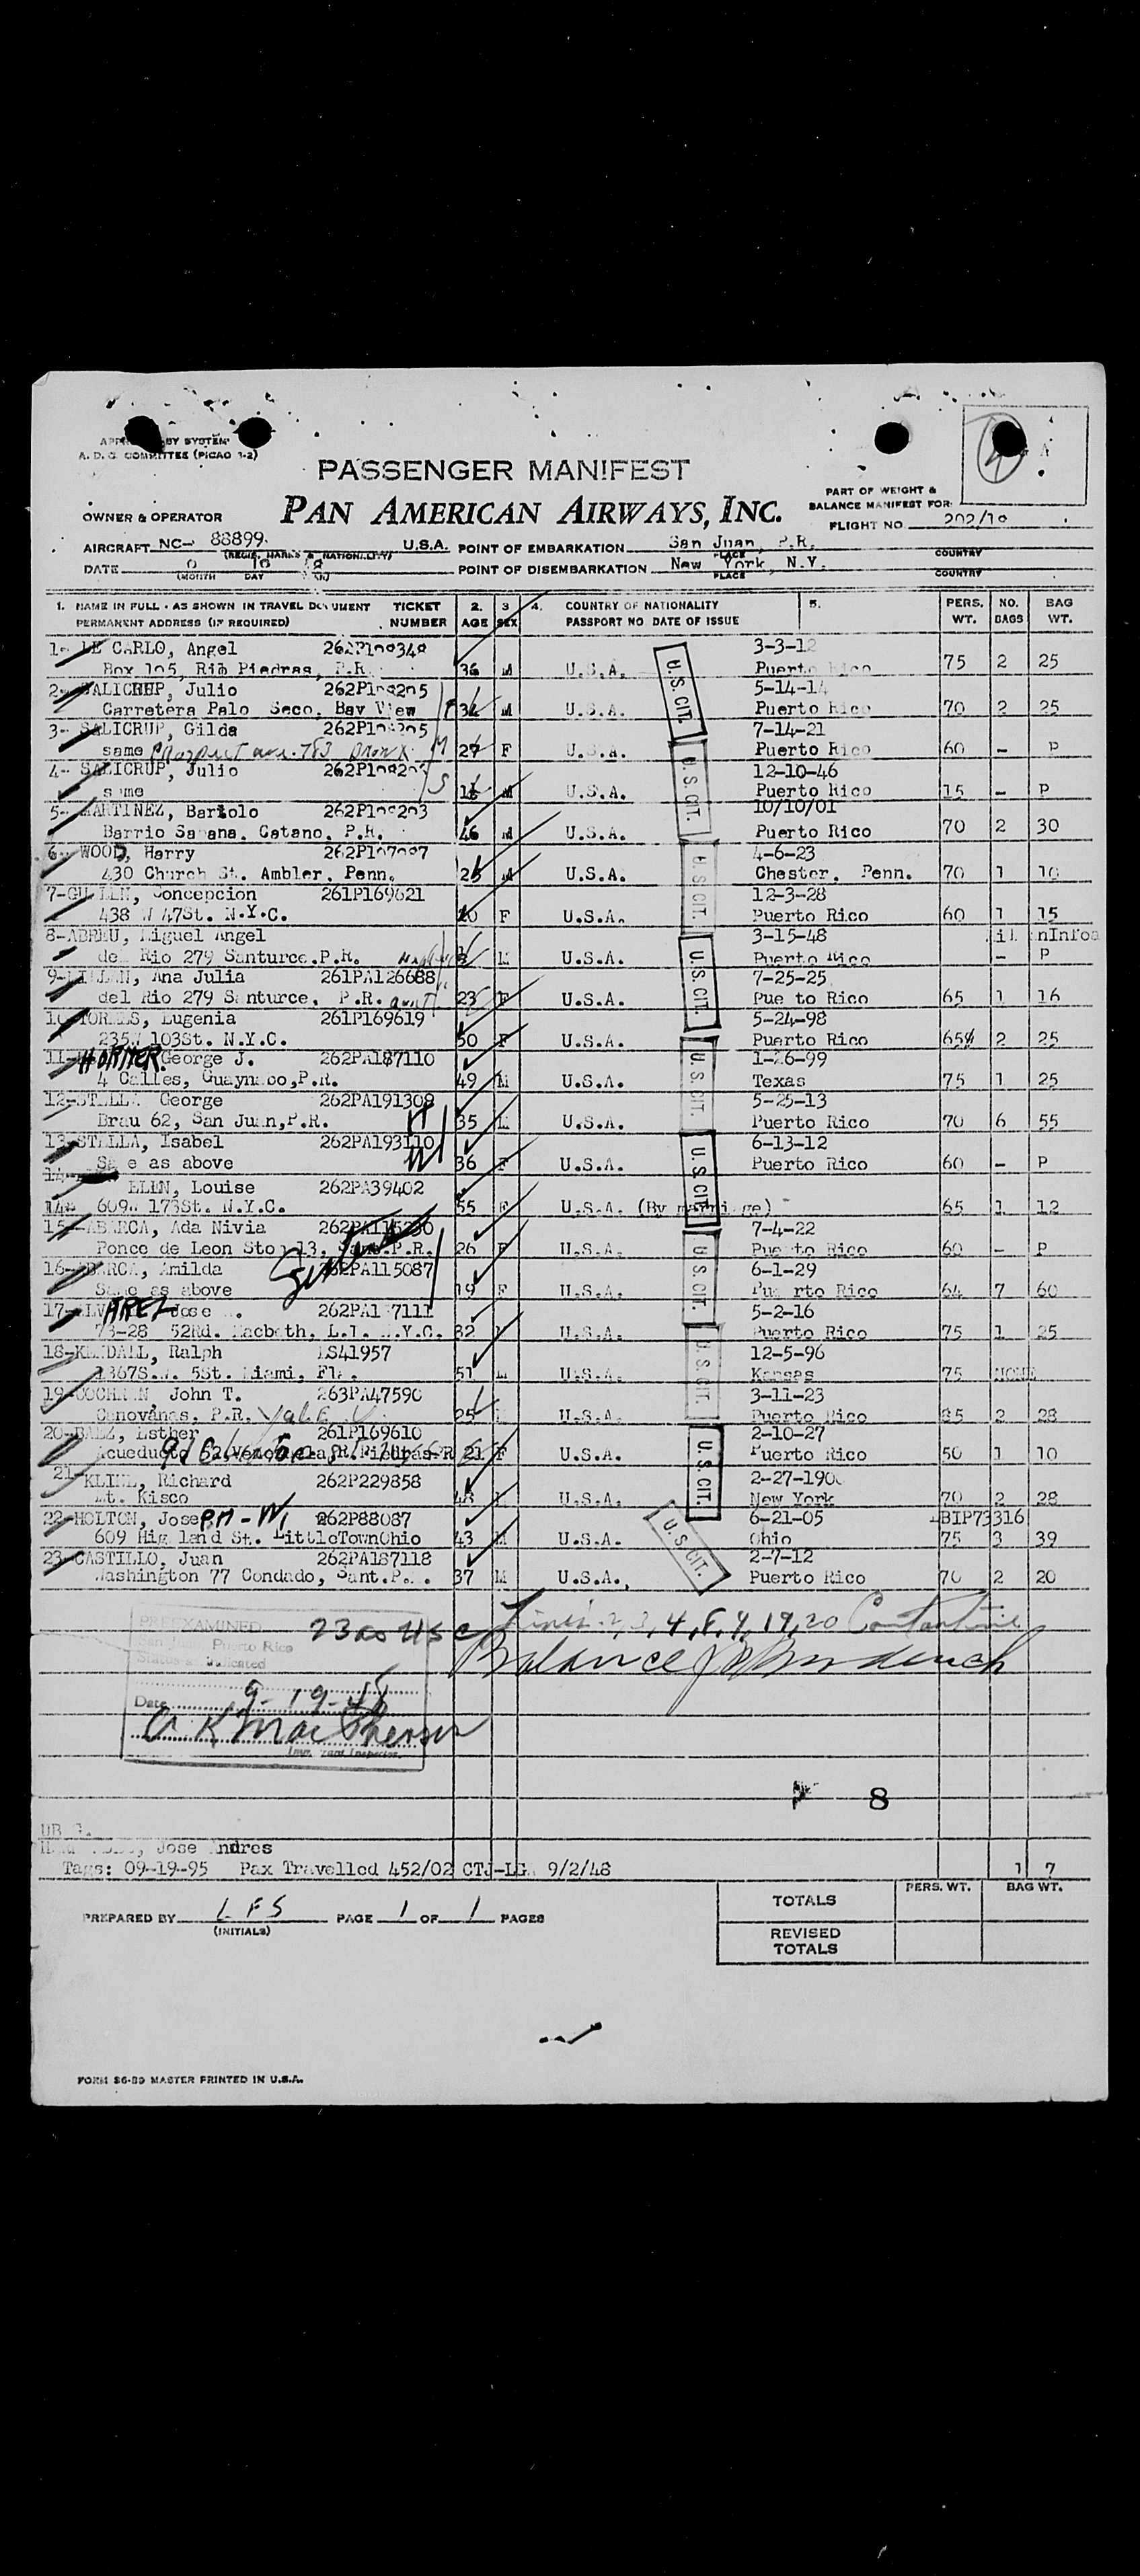 BY SYSTEM
A. D. C. COMMITTEE (PICAO 1-2)
PASSENGER MANIFEST
PAN AMERICAN AIRWAYS, INC.
PART OF WEIGHT &
BALANCE MANIFEST FOR:
OWNER & OPERATOR
FLIGHT NO 202/19
AIRCRAFT NC- 88899 U.S.A. POINT OF EMBARKATION San Juan, P.R.
PLACE COUNTRY
DATE POINT OF DISEMBARKATION New York, N.Y.
(MONTH DAY PLACE COUNTRY
1. NAME IN FULL - AS SHOWN IN TRAVEL DOCUMENT TICKET 2. 3 4. COUNTRY OF NATIONALITY 5. PERS. NO. BAG
PERMANENT ADDRESS (IF REQUIRED) NUMBER AGE SEX PASSPORT NO DATE OF ISSUE WT. BAGS WT.
1- LE CARLO, Angel 262P108348 3-3-12
Box 105, Rio Piedras, P.R. 36 M U.S.A. Puerto Rico 75 2 25
2- SALICRUP, Julio 5-14-14
Carretera Palo Seco, Bay View 34 M U.S.A. Puerto Rico 70 2 25
3- SALICRUP, Gilda 7-14-21
same 27 F U.S.A. Puerto Rico 60 - P
4- SALICRUP, Julio 12-10-46
same M U.S.A. Puerto Rico 15 - P
5- MARTINEZ, Bartolo 10/10/01
Barrio Sabana. Catano, P.R. 46 M U.S.A. Puerto Rico 70 2 30
6- WOOD, Harry 4-6-23
430 Church St. Ambler, Penn. 25 M U.S.A. Chester, Penn. 70 1 10
7- Concepcion 261P169621 12-3-28
438 W 47St. N.Y.C. F U.S.A. Puerto Rico 60 1 15
8-ABREU, Miguel Angel 3-15-48
del Rio 279 Santurce.P.R. M U.S.A. Puerto Rico - P
9- Ana Julia 261PA126688 7-25-25
del Rio 279 Santurce, P.R. aunt 23 F U.S.A. Puerto Rico 65 1 16
10-TORRES, Eugenia 261P169619 5-24-98
235W 103St. N.Y.C. 50 F U.S.A. Puerto Rico 65 2 25
11-HORNER George J. 262PA187110 1-26-99
4 Calles, Guaynabo,P.R. 49 M U.S.A. Texas 75 1 25
12-STELLA George 262PA191308 5-25-13
Brau 62, San Juan,P.R. H 35 M U.S.A. Puerto Rico 70 6 55
13-STELLA, Isabel 262PA193110 6-13-12
Same as above W 36 F U.S.A. Puerto Rico 60 - P
Louise 262PA39402
14- 609W 173St. N.Y.C. 55 F U.S.A. (By marriage) 65 1 12
15-ABARCA, Ada Nivia 7-4-22
Ponce de Leon Stop 13, Sant.P.R. 26 F U.S.A. Puerto Rico 60 - P
16-ABARCA, Amilda 262PA115087 6-1-29
Same as above 19 F U.S.A. Puerto Rico 64 7 60
17-ALVAREZ Jose 5-2-16
73-28 52Rd. Macbeth, L.I. N.Y.C. 32 U.S.A. Puerto Rico 75 1 25
18-KENDALL, Ralph LS41957 12-5-96
1367S.W. 5St. Miami, Fla. 51 M U.S.A. Kansas 75 NONE
19-COCHRAN, John T. 263PA47590 3-11-23
Canovanas, P.R. 25 U.S.A. Puerto Rico 85 2 28
20-BAEZ, Esther 261P169610 2-10-27
Acueducto 21 F U.S.A. Puerto Rico 50 1 10
21-KLINE, Richard 262P229858
Mt. Kisco 48 U.S.A. New York 70 2 28
22-HOLTON, JosePH-W, 262P88087 6-21-05 LBIP73316
609 Highland St. LittleTownOhio 43 M U.S.A. Ohio 75 3 39
23-CASTILLO, Juan 262PA187118 2-7-12
Washington 77 Condado, Sant.P.R. 37 M U.S.A., Puerto Rico 70 2 20
U.S. CIT.
U.S. CIT.
U.S. CIT.
U.S. CIT.
U.S. CIT.
U.S. CIT.
U.S. CIT.
U.S. CIT.
U.S. CIT.
U.S. CIT.
PREEXAMINED
San Juan, Puerto Rico
Status as indicated
23 as USC Lines 2, 3, 4, 8, 9, 19, 20
Balance
Date 9-19-48
A K MacPherson
Immigrant Inspector
8
Jose Andres
Tags: 09-19-95 Pax Travelled 452/02 9/2/48 1 7
PREPARED BY LFS PAGE 1 OF 1 PAGES
(INITIALS)
PERS. WT. BAG WT.
TOTALS
REVISED
TOTALS
FORM 86-89 MASTER PRINTED IN U.S.A.